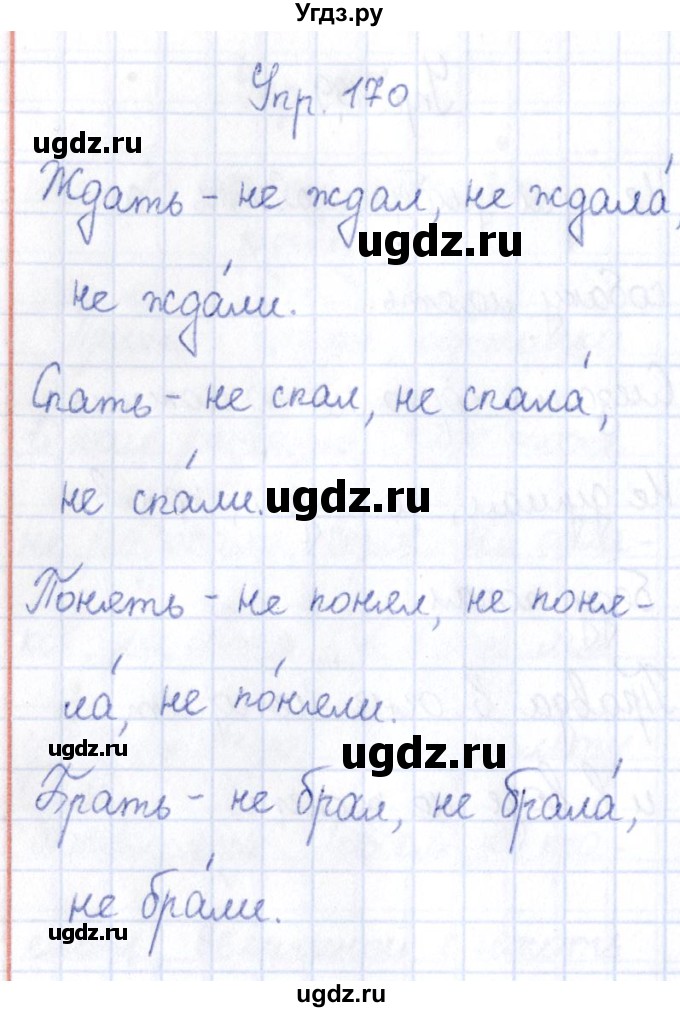 Угдз.ру
Упр. 170
ugdz.ru
Ждать - не ждал, не ждала́,
ugdz.ru
не жда́ли.
Спать - не спал, не спала́,
не спа́ли.
ugdz.ru
Понять - не понял, не поня-
ла́, не по́няли.
ugdz.ru
ugdz.ru
Брать - не брал, не брала́,
не бра́ли.
ugdz.ru
ugdz.ru